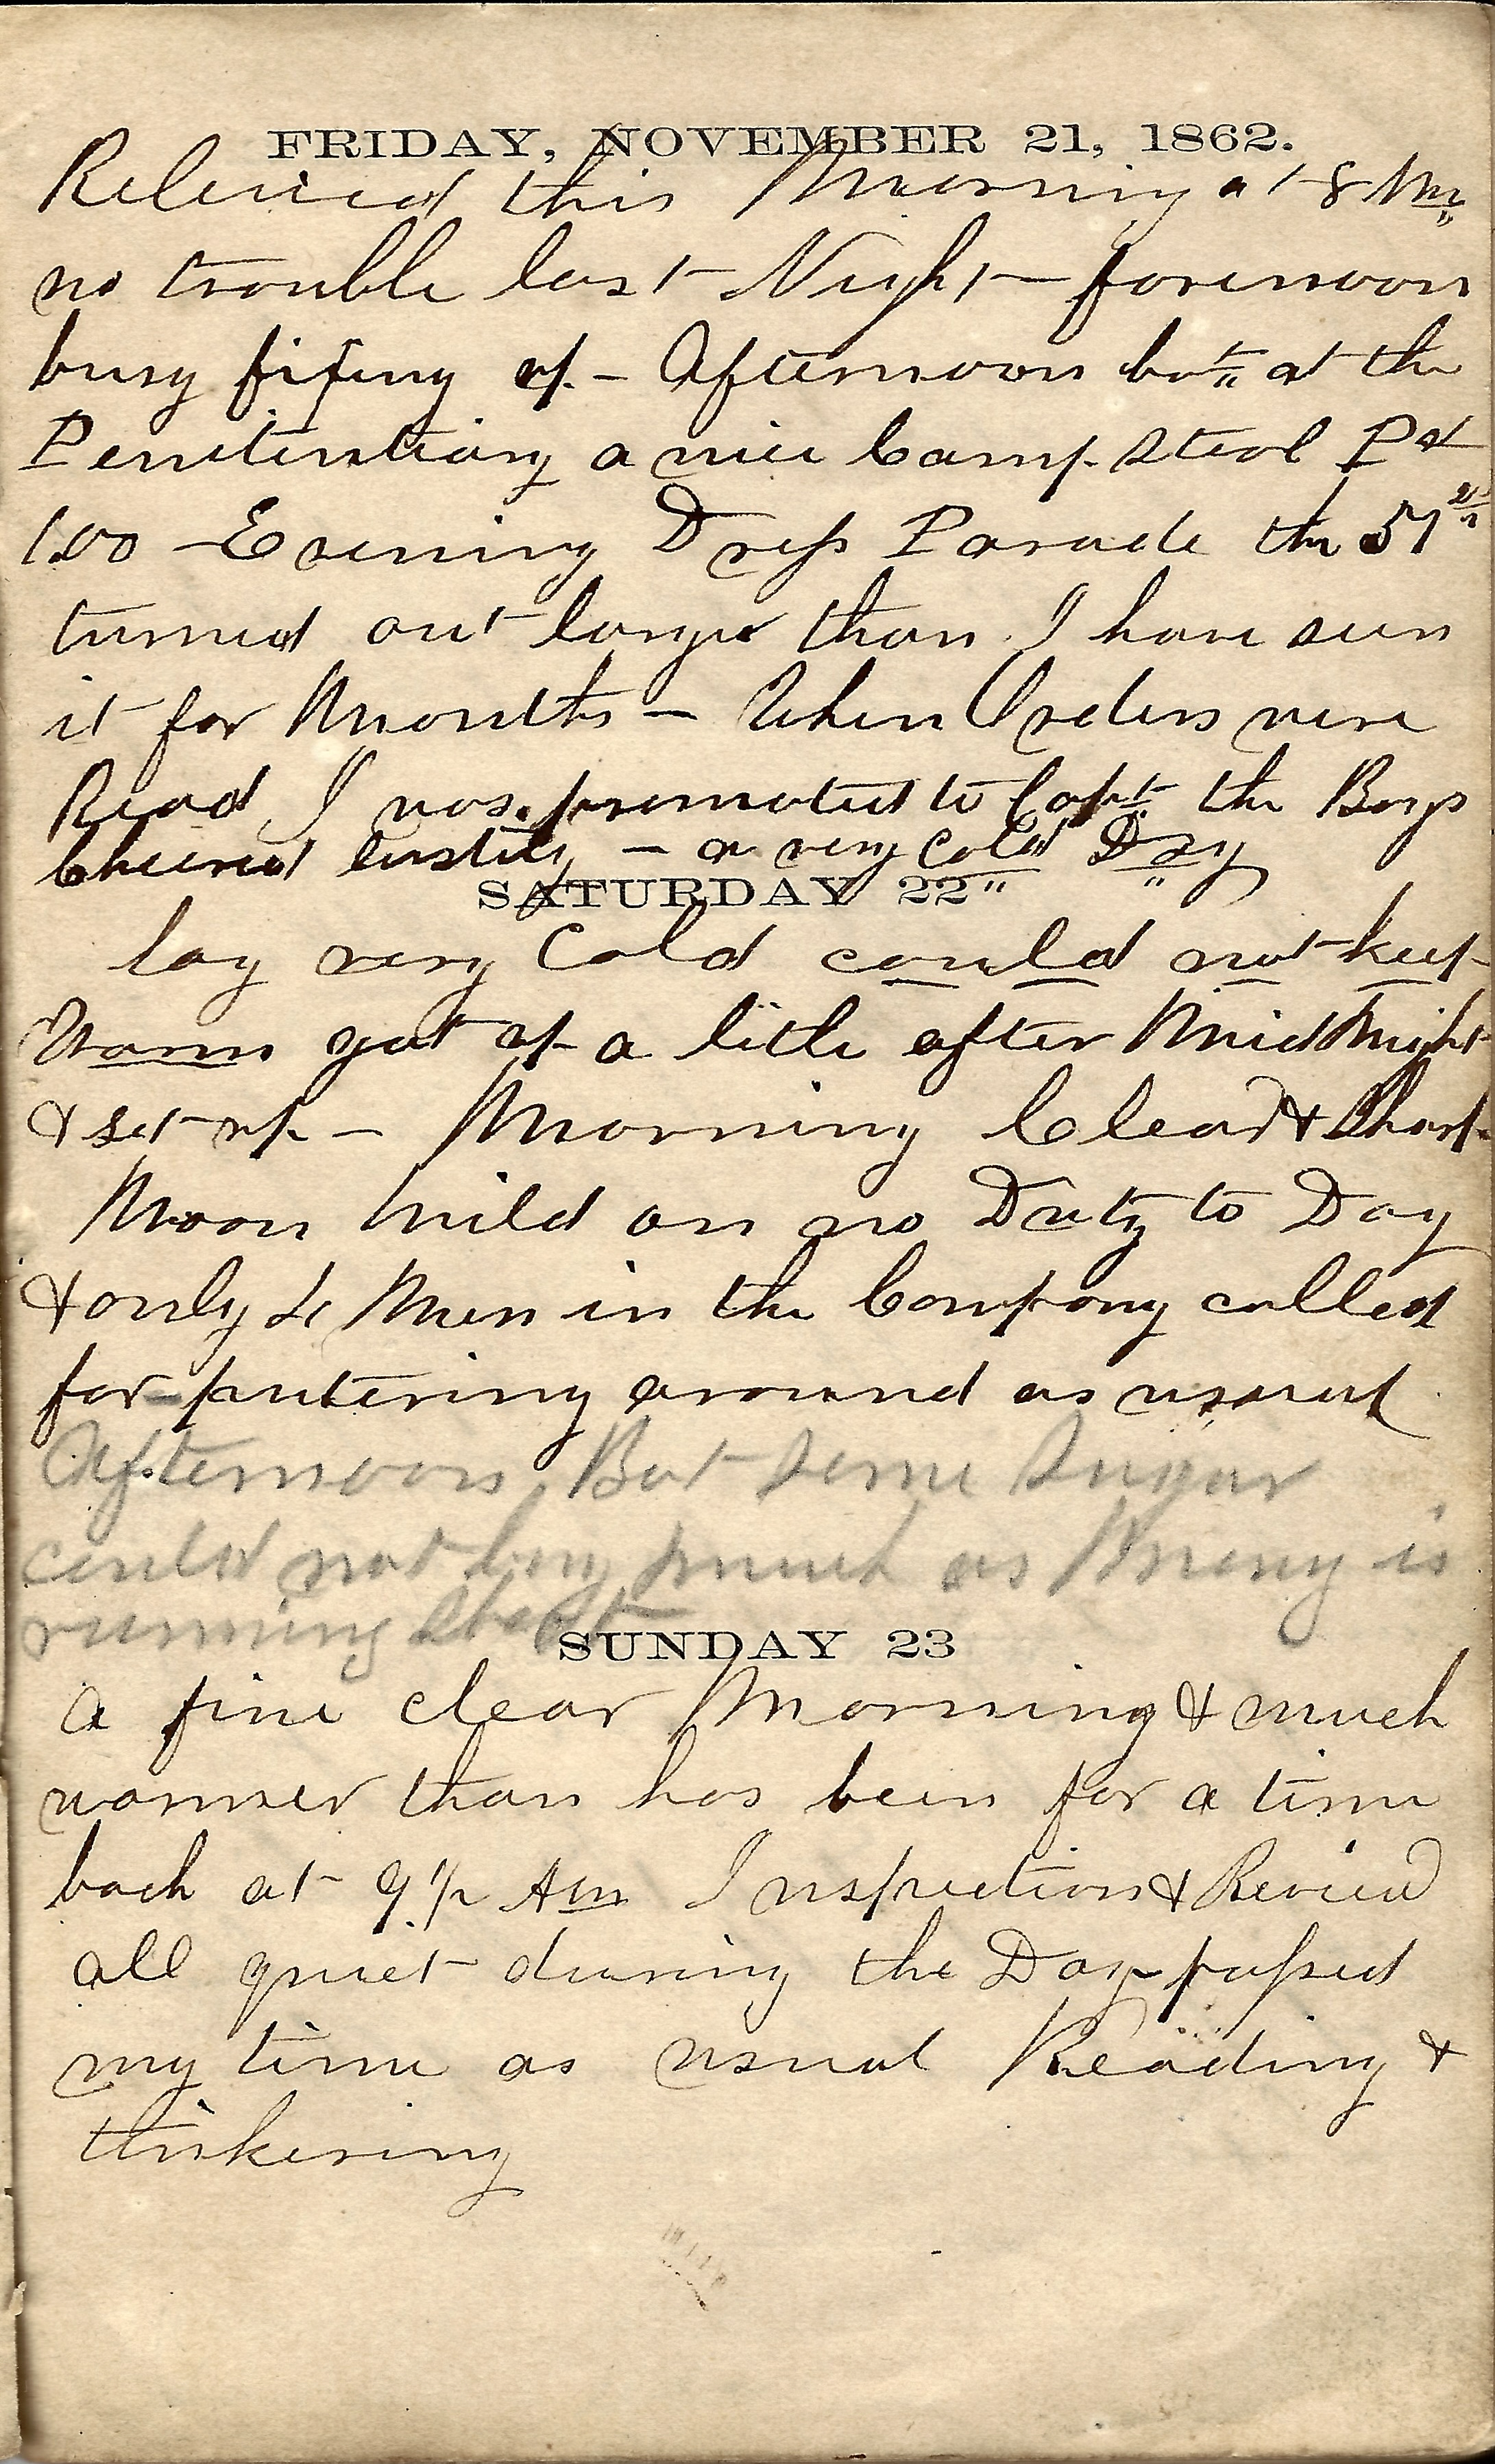 FRIDAY, NOVEMBER 21, 1862.
Releived this Morning at 8
no trouble last Night — forenoon
busy fixing up. — Afternoon bot at the
Penitentiary a nice Camp. Stool Pd
1.00 — Evening Dress Parade the 51st
turned out larger than I have seen
it for Months — When Orders were
Read I was promoted to Capt the Boys
Cheered lustily — a very Cold Day
SATURDAY 22"
lay very Cold could not keep
Warm got up a litle after Mid Night
& set up — Morning Clear & Sharp
Noon Mild on no Duty to Day
& only 4 Men in the Company called
for — putering around as usual
Afternoon Bot some Sugar
could not buy much as Money is
running short
SUNDAY 23
a fine clear Morning & much
warmer than has been for a time
back at 9 1/2 Am Inspection & Review
all quiet during the Day passed
my time as usual Reading &
thinkering